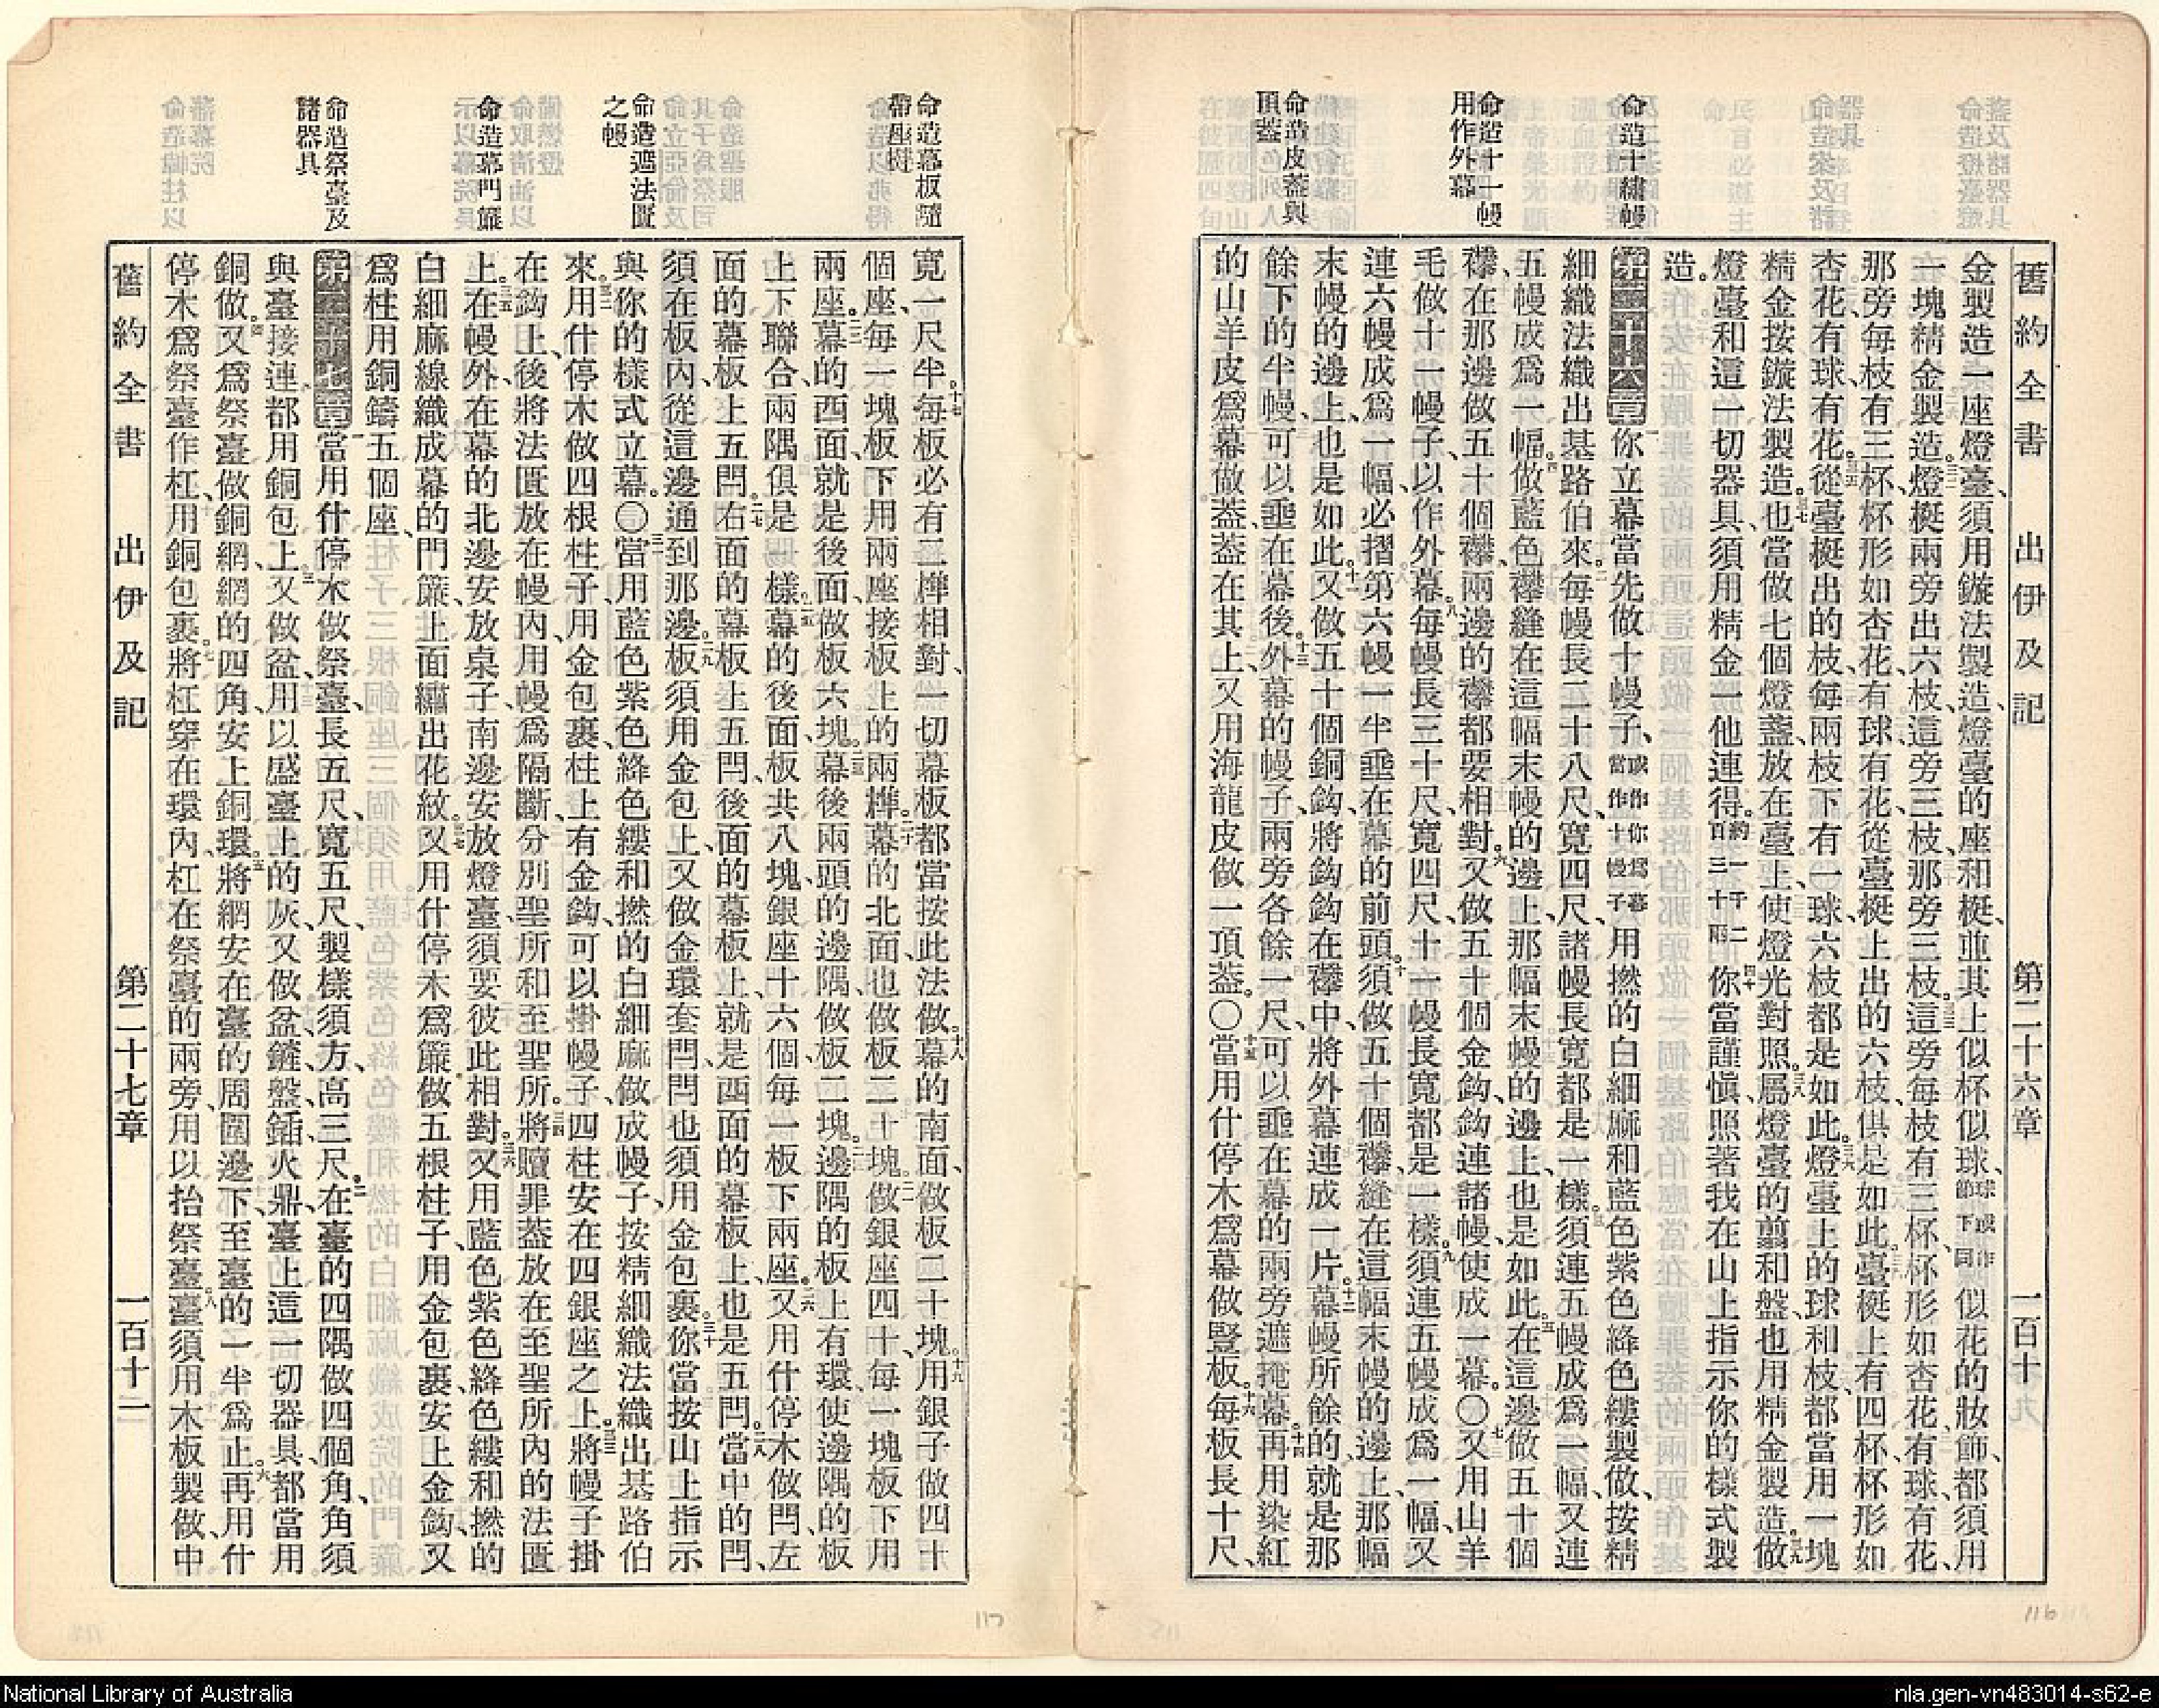 舊約全書 出伊及記 第二十六章 一百十
命造十繡幔
命造十一幔
用作外幕
命造皮葢與
頂葢
金製造一座燈臺、須用鏇法製造、燈臺的座和梃、並其上似杯似球、球或作節下同似花的妝飾、都須用
一塊精金製造。三二燈梃兩旁出六枝、這旁三枝、那旁三枝。三三這旁每枝有三杯、杯形如杏花、有球、有花、
那旁每枝有三杯、杯形如杏花、有球、有花、從臺梃上出的六枝、俱是如此。三四臺梃上有四杯、杯形如
杏花、有球、有花。三五從臺梃出的枝、每兩枝下有一球、六枝都是如此。三六燈臺上的球和枝、都當用一塊
精金按鏇法製造。三七也當做七個燈盞、放在臺上、使燈光對照。三八屬燈臺的剪和盤、也用精金製造。三九做
燈臺和這一切器具、須用精金一他連得。約一千二百三十兩四十你當謹愼、照著我在山上指示你的樣式製
造。
第二十六章一你立幕當先做十幔子、或作你爲幕當作十幔子用撚的白細麻、和藍色紫色絳色縷製做、按精
細織法織出基路伯來。二每幔長二十八尺、寬四尺、諸幔長寬都是一樣。三須連五幔成爲一幅、又連
五幔成爲一幅。四做藍色襻縫在這幅末幔的邊上、那幅末幔的邊上、也是如此。五在這邊做五十個
襻、在那邊做五十個襻、兩邊的襻都要相對。六又做五十個金鈎、鈎連諸幔、使成一幕。〇七又用山羊
毛做十一幔子、以作外幕。八每幔長三十尺、寬四尺、十一幔長寬都是一樣。九須連五幔成爲一幅、又
連六幔成爲一幅、必摺第六幔一半垂在幕的前頭。十須做五十個襻、縫在這幅末幔的邊上、那幅
末幔的邊上、也是如此。十一又做五十個銅鈎、將鈎鈎在襻中、將外幕連成一片。十二幕幔所餘的、就是那
餘下的半幔、可以垂在幕後。十三外幕的幔子、兩旁各餘一尺、可以垂在幕的兩旁遮掩幕。十四再用染紅
的山羊皮爲幕做葢、葢在其上、又用海龍皮做一頂葢。〇十五當用什停木爲幕做豎板。十六每板長十尺、
命造幕板隨
帶座閂
命造遮法匱
之幔
命造幕門簾
命造祭臺及
諸器具
寬一尺半。十七每板必有二榫相對、一切幕板都當按此法做。十八幕的南面、做板二十塊。十九用銀子做四十
個座、每一塊板下用兩座、接板上的兩榫。二十幕的北面、也做板二十塊。二一做銀座四十、每一塊板下用
兩座。二二幕的西面、就是後面、做板六塊。二三幕後兩頭的邊隅、做板二塊。二四邊隅的板上有環、使邊隅的板
上下聯合、兩隅俱是一樣。二五幕的後面、板共八塊、銀座十六個、每一板下兩座。二六又用什停木做閂、左
面的幕板上五閂。二七右面的幕板上五閂、後面的幕板上、就是西面的幕板上、也是五閂。二八當中的閂、
須在板內、從這邊通到那邊。二九板須用金包上、又做金環套閂、閂也須用金包裹。三十你當按山上指示
與你的樣式立幕。〇三一當用藍色紫色絳色縷、和撚的白細麻、做成幔子、按精細織法織出基路伯
來。三二用什停木做四根柱子、用金包裹、柱上有金鈎、可以掛幔子、四柱安在四銀座之上。三三將幔子掛
在鈎上、後將法匱放在幔內、用幔爲隔斷、分別聖所和至聖所。三四將贖罪葢放在至聖所內的法匱
上。三五在幔外、在幕的北邊安放桌子、南邊安放燈臺、須要彼此相對。三六又用藍色紫色絳色縷、和撚的
白細麻線織成幕的門簾、上面繡出花紋。三七又用什停木爲簾做五根柱子、用金包裹、安上金鈎、又
爲柱用銅鑄五個座、
第二十七章一當用什停木做祭臺、長五尺、寬五尺、製樣須方、高三尺。二在臺的四隅做四個角、角須
與臺接連、都用銅包上。三又做盆、用以盛臺上的灰、又做盆、鏟、盤、鍤、火鼎、臺上這一切器具、都當用
銅做。四又爲祭臺做銅網、網的四角、安上銅環。五將網安在臺的周圍邊下、至臺的一半爲止。六再用什
停木爲祭臺作杠、用銅包裹。七將杠穿在環內、杠在祭臺的兩旁、用以抬祭臺。八臺須用木板製做、中
舊約全書 出伊及記 第二十七章 一百十一
116
117
National Library of Australia
nla.gen-vn483014-s62-e